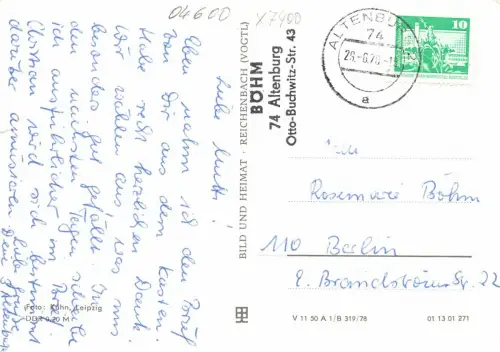 04600
X7400
Liebe Mutti!
Eben nahm ich den Brief
von Dir aus dem Kasten.
Habe recht herzlichen Dank.
Wir wählen aus, was uns
besonders gut gefällt. In
den nächsten Tagen schreibe
ich ausführlicher im Brief.
Christian wird sich bestimmt
darüber amüsieren.
Liebe Grüße
Deine
Foto: Kühn, Leipzig
BILD UND HEIMAT · REICHENBACH (VOGTL)
BÖHM
74 Altenburg
Otto-Buchwitz-Str. 43
ALTENBU
74
a
10
Rosemarie Böhm
110 Berlin
E. Brandström-Str. 22
V 11 50 A 1/B 319/78
01 13 01 271